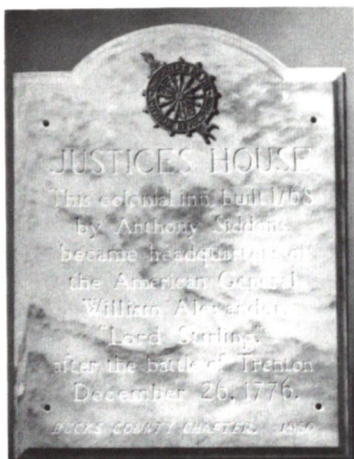 JUSTICE'S HOUSE
This colonial inn, built 1768
by Anthony Siddons,
became headquarters of
the American General
William Alexander,
"Lord Stirling,"
after the battle of Trenton
December 26, 1776.
BUCKS COUNTY CHAPTER 1960